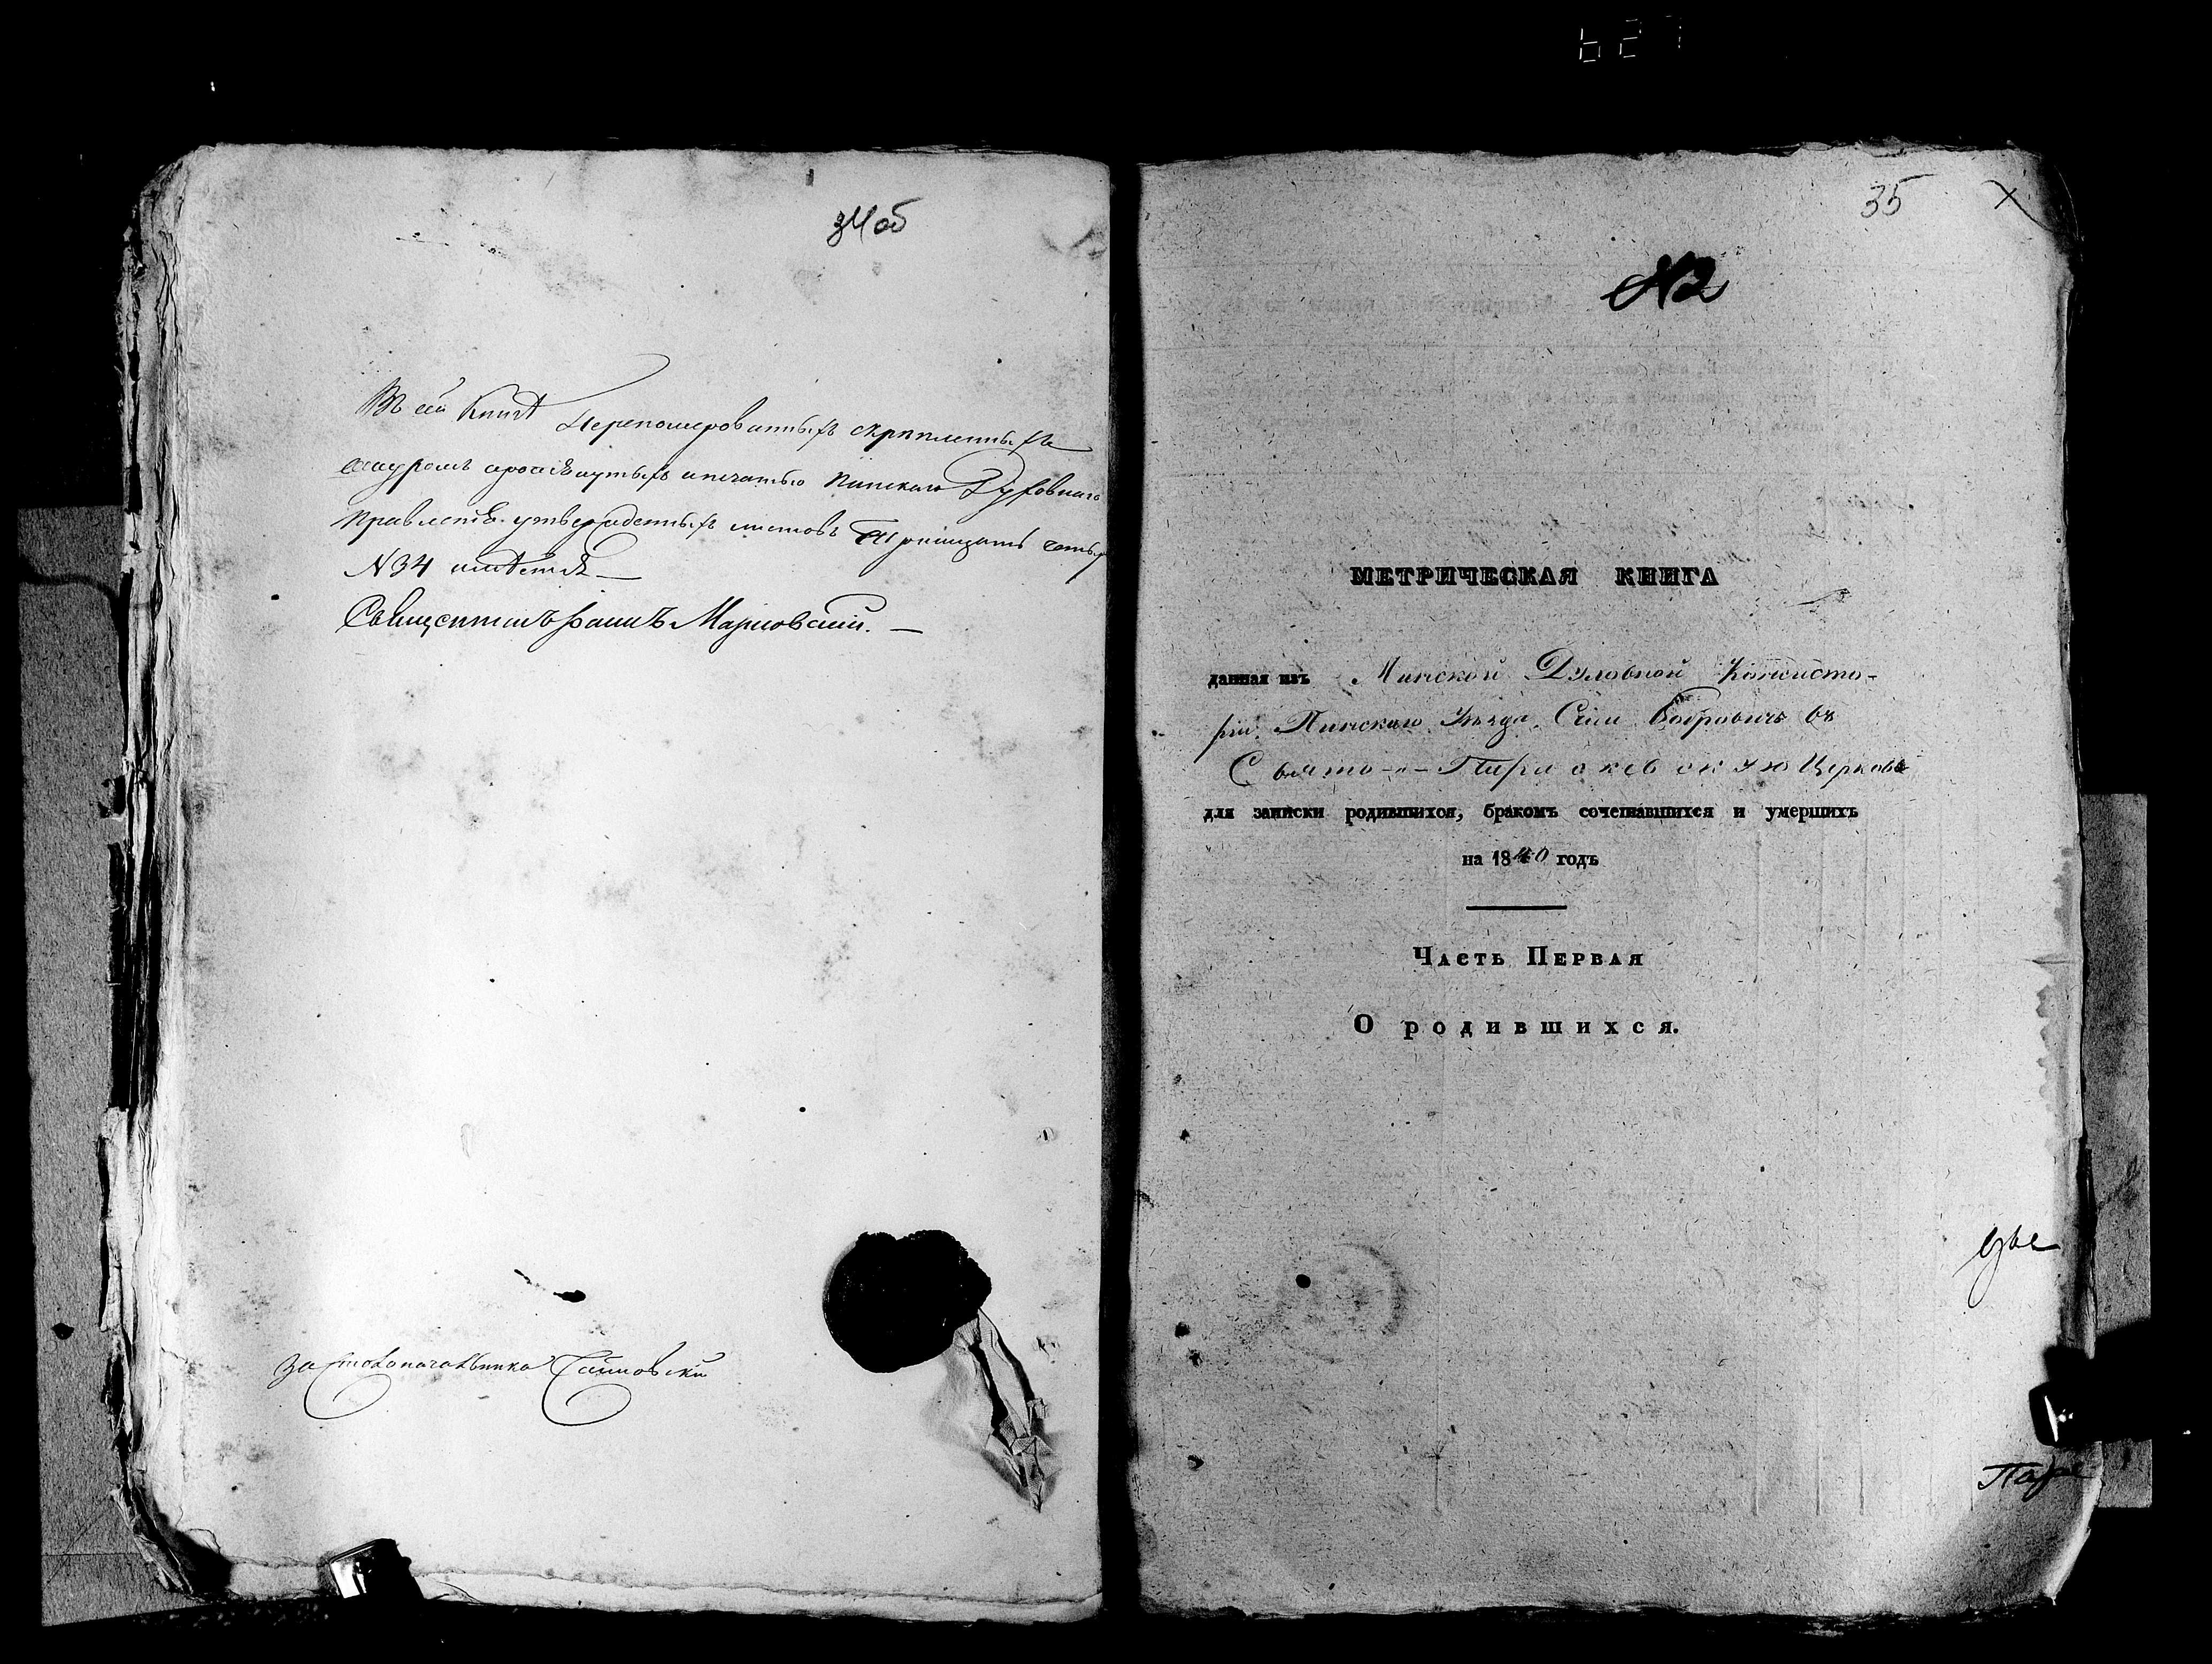 34 об
Въ сей Книгѣ Перепомерованныхъ скрѣпленныхъ
шнуромъ просѣнутыхъ и печатью Пинскаго Духовнаго
Правленія утвержденныхъ листовъ Тридцать четыре
N 34 имѣется
Священникъ Марковскій.
за Столоначальника
35
N 2
МЕТРИЧЕСКАЯ КНИГА
данная изъ Минской Духовной Консисто-
ріи, Пинскаго Уѣзда, Села Бобровичь въ
Свято-Параскевскую Церковь
для записки родившихся, бракомъ сочетавшихся и умершихъ
на 1840 годъ
Часть Первая
О родившихся.